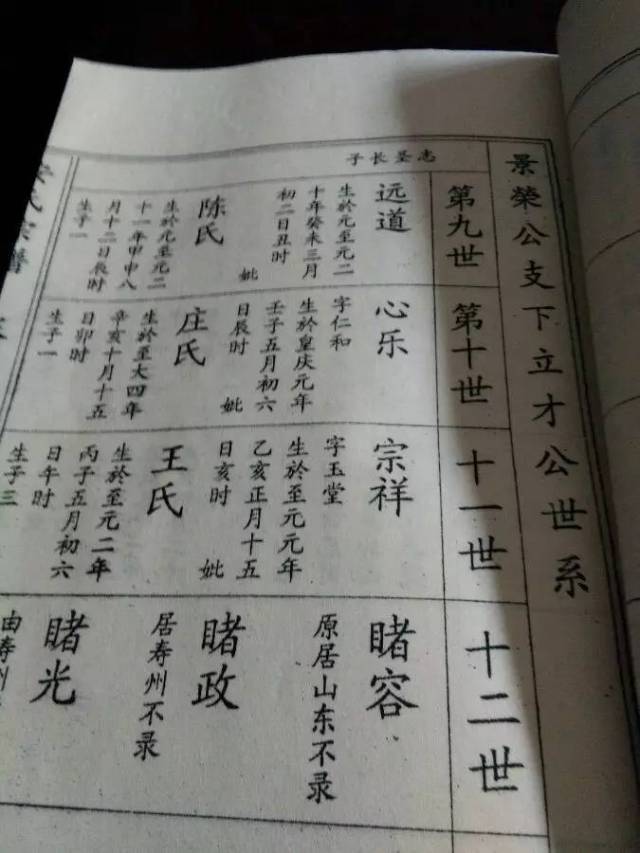 景榮公支下立才公世系
第九世
志圣长子
远道
生於元至元二
十年癸未三月
初二日丑时
妣
陈氏
生於元至元二
十一年甲申八
月十二日辰时
生子一
第十世
心乐
字仁和
生於皇庆元年
壬子五月初六
日辰时
妣
庄氏
生於至大四年
辛亥十月十五
日卯时
生子一
十一世
宗祥
字玉堂
生於至元元年
乙亥正月十五
日亥时
妣
王氏
生於至元二年
丙子五月初六
日午时
生子三
十二世
睹容
原居山东不录
睹政
居寿州不录
睹光
由寿州
氏宗谱